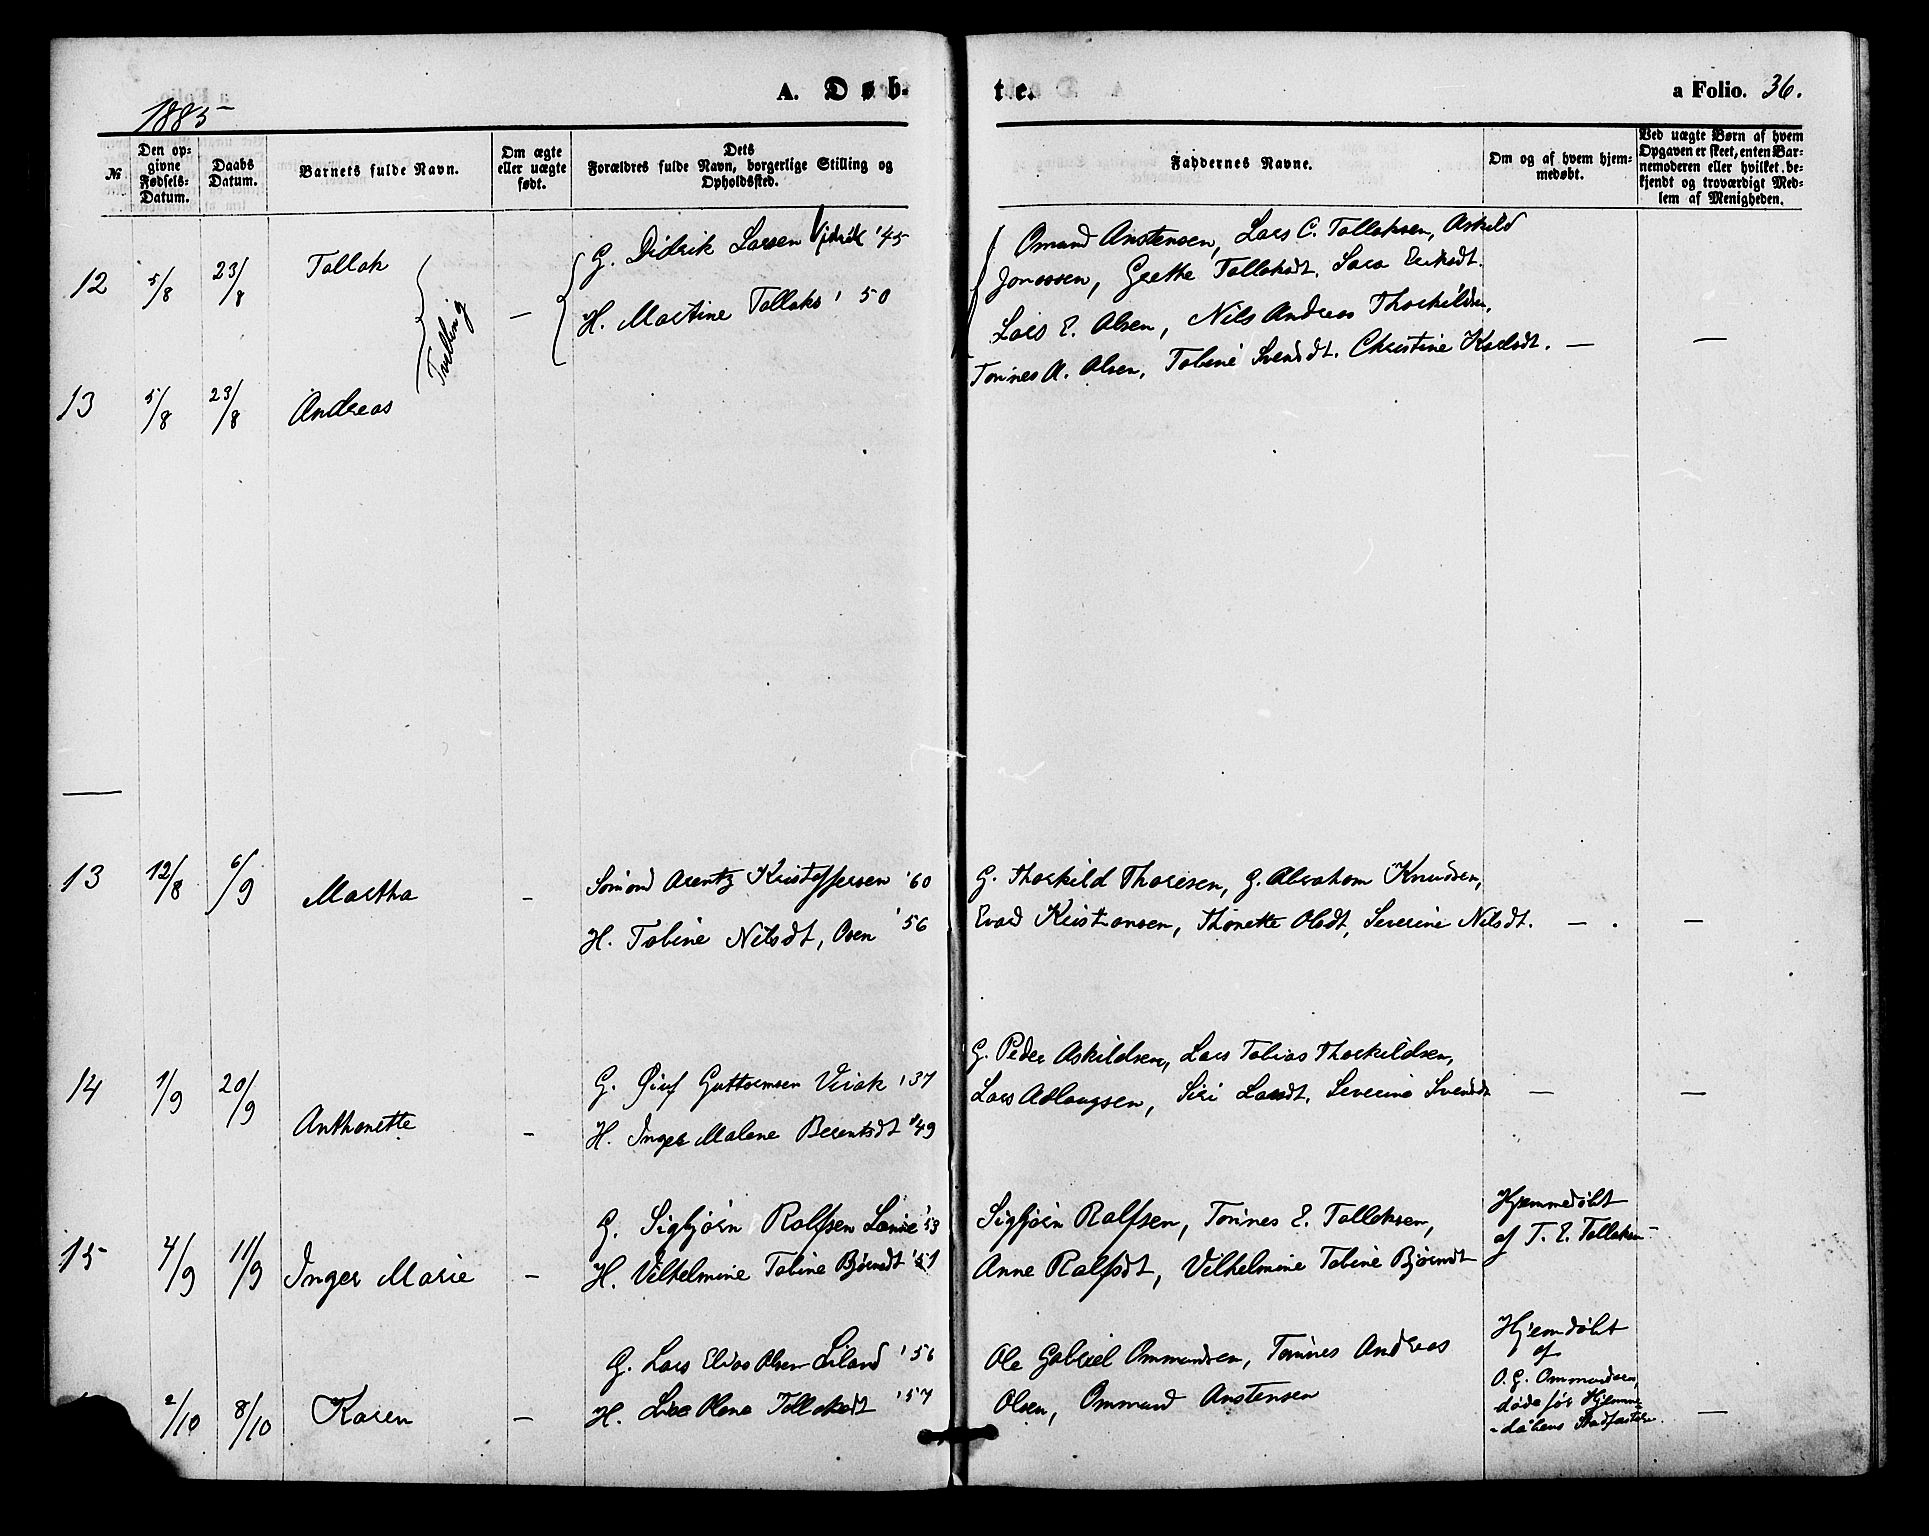 1885
A. Døb-
te.
a Folio. 36.
№
Den op-
givne
Fødsels-
Datum.
Daabs
Datum.
Barnets fulde Navn.
Om ægte
eller uægte
født.
Dets
Forældres fulde Navn, borgerlige Stilling og
Opholdssted.
Faddernes Navne.
Om og af hvem hjem-
medøbt.
Ved uægte Børn af hvem
Opgaven er skeet, enten Bar-
nemoderen eller hvilket be-
kjendt og troværdigt Med-
lem af Menigheden.
12 5/8 23/8 Tollak
Tvilling
—
G. Didrik Larsen '45
H. Martine Tollaks ' 50
Omund Anstensen, Lars C. Tollaksen, Askild
Jonassen, Grethe Tollaksdt. Sara Eriksdt.
Lars E. Olsen, Nils Andreas Thorkildsen,
Tønnes A. Olsen, Tobine Svendsdt. Christine Karlsdt. — —
13 5/8 23/8 Andreas
—
13 12/8 6/9 Martha —
Arentz Kristoffersen '60
H. Tobine Nilsdt, Osen '56
G. Thorkild Thoresen, G. Abraham Knudsen,
Evad Kristiansen, Thonette Olsdt, Severine Nilsdt. — . —
14 1/9 20/9 Anthonette —
G. Guttormsen Virak '37
H. Inger Malene Berentsdt '49
G. Peder Askildsen, Lars Tobias Thorkildsen,
Lars Aslaugsen, Siri Larsdt. Severine Svendsdt — —
15 4/9 11/9 Inger Marie —
G. Sigbjørn Rolfsen '53
H. Vilhelmine Tobine Bjørnsdt '51
Sigbjørn Rolfsen, Tønnes E. Tollaksen,
Anne Rolfsdt, Vilhelmine Tobine Bjørnsdt
Hjemmedøbt
af T. E. Tollaksen —
2/10 8/10 Karen —
G. Lars Elias Olsen Liland '56
H. Lise Olene Tollaksdt '57
Ole Gabriel Ommundsen, Tønnes Andreas
Olsen, Ommund Anstensen
Hjemdøbt
af
O. G. Ommundsen,
døde før Hjemme-
-daabens Stadfæstelse. —